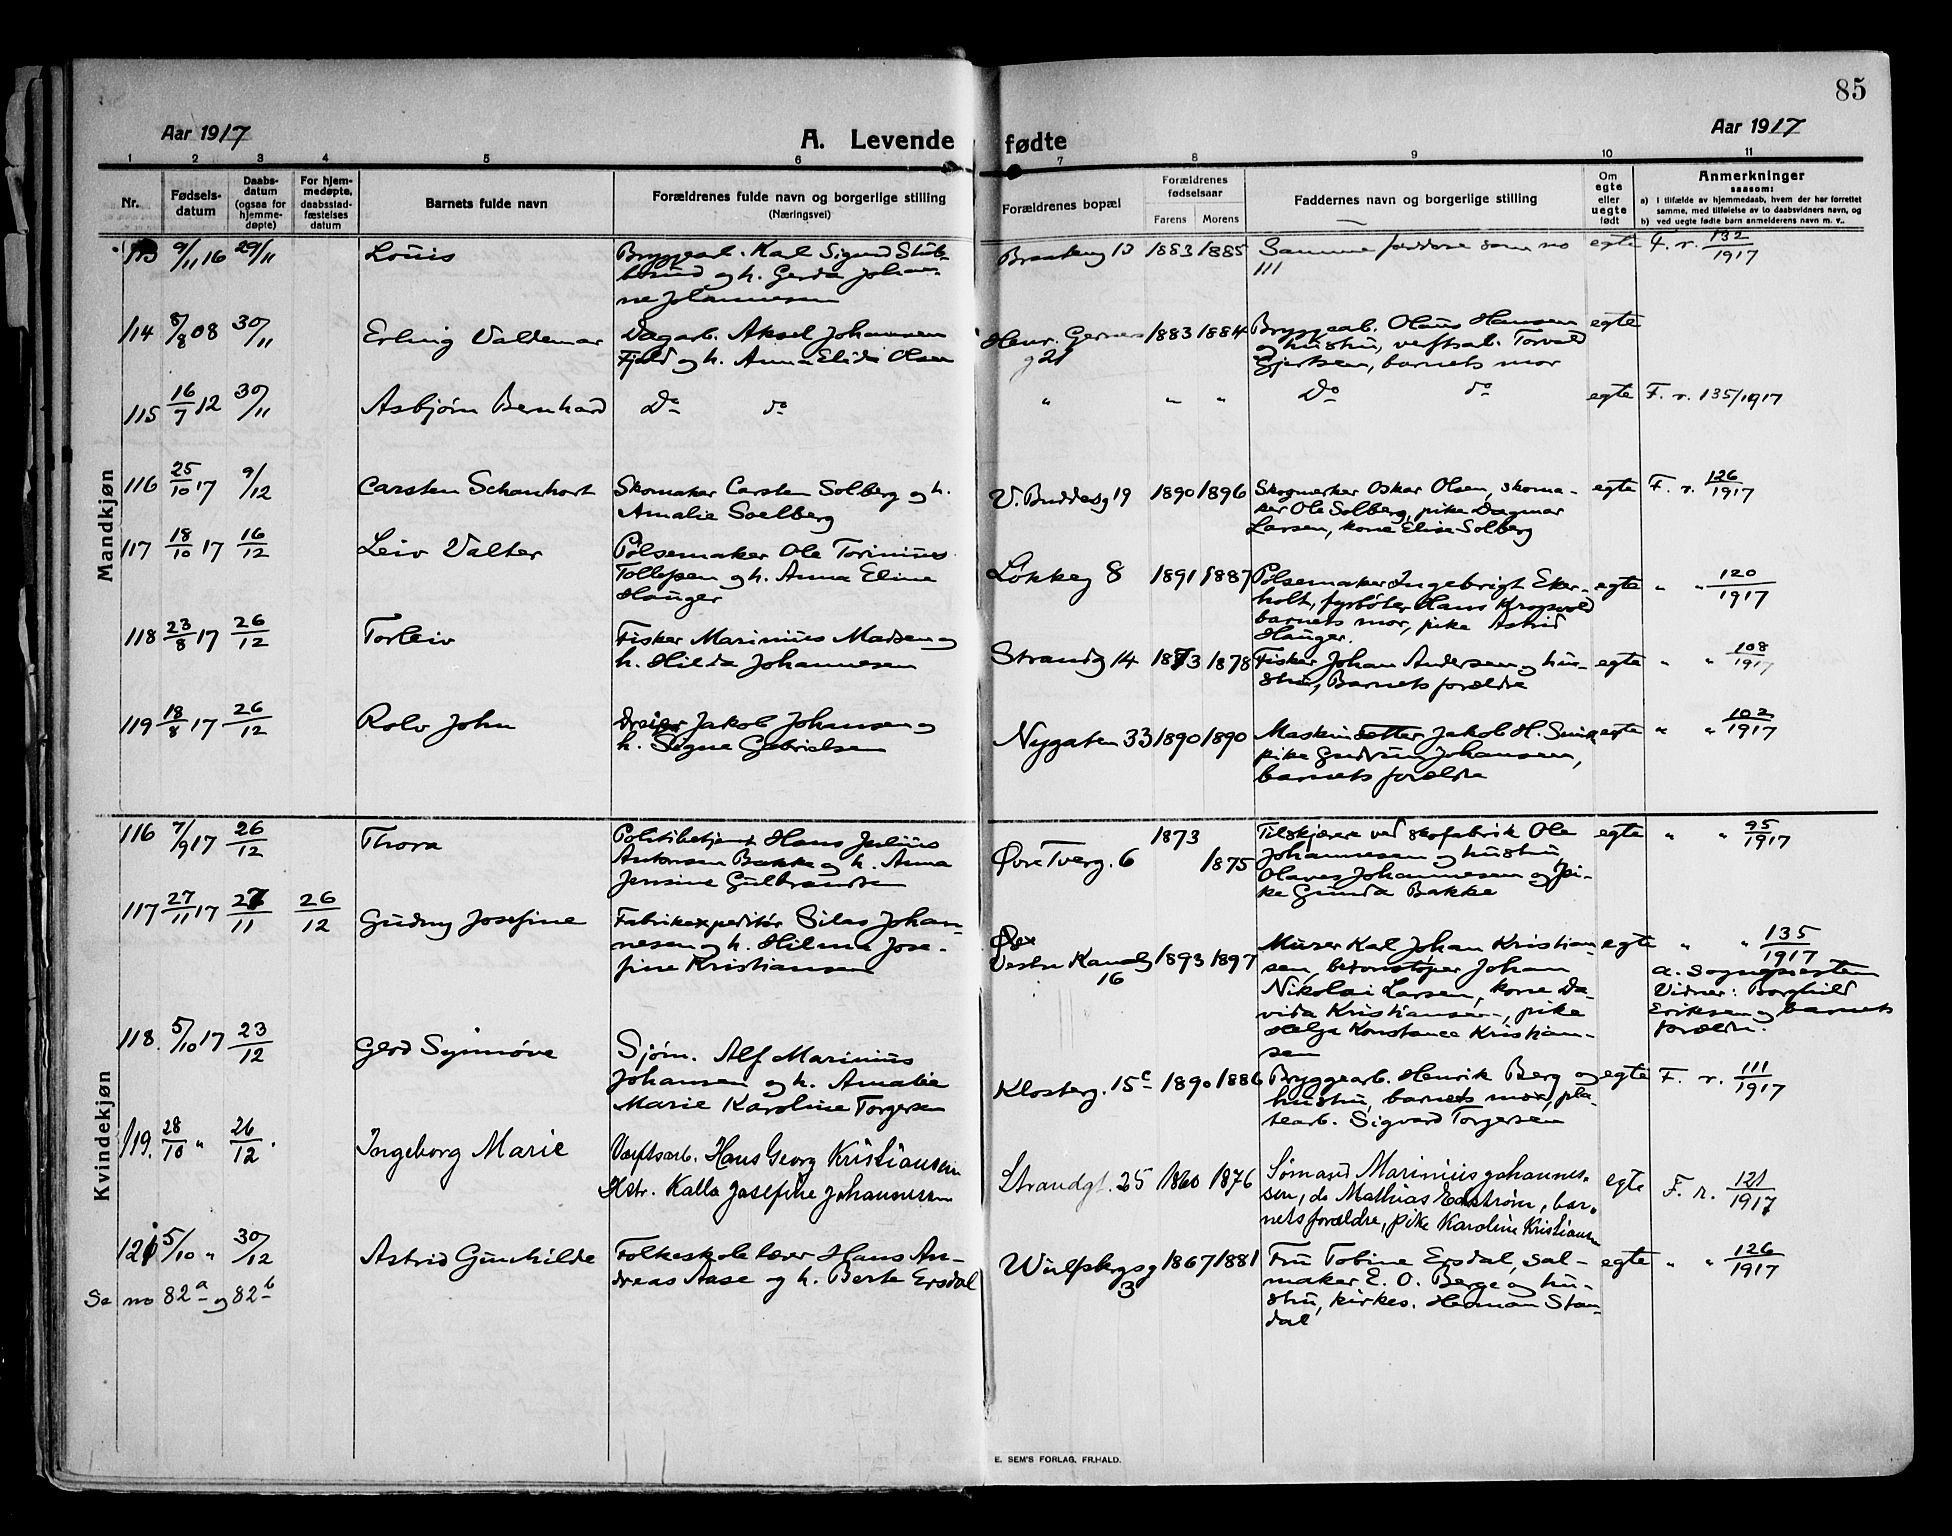 85
Aar 1917
A. Levende fødte
Aar 1917
1 2 3 4 5 6 7 8 9 10 11
Nr.
Fødsels-
datum
Daabs-
datum
(ogsaa for
hjemme-
døpte)
For hjem-
medøpte,
daabsstad-
fæstelses
datum
Barnets fulde navn
Forældrenes fulde navn og borgerlige stilling
(Næringsvei)
Forældrenes bopæl
Forældrenes
fødselsaar
Farens Morens
Faddernes navn og borgerlige stilling
Om
egte
eller
uegte
født
Anmerkninger
saasom:
a) I tilfælde av hjemmedaab, hvem der har forrettet
samme, med tilføielse av to daabsvidners navn, og
b) ved uegte fødte barn anmelderens navn m. v..
Mandkjøn
113 9/11 16 29/11 Louis
Bryggearb. Karl Sigurd
og h. Gerda Johan-
ne Johannesen
Braateng 13 1883 1885
Samme faddere som no
111
egte F. r. 132/1917
114 8/8 08 30/11 Erling Valdemar
Dagarb. Aksel Johannsen
Fjeld og h. Anna Elida Olsen
Henr. Gerners
g 21
1883 1884
Bryggearb. Olaus Hansen
og hustru, verftsarb. Torvald
Gjertsen, barnets mor
egte
115 16/7 12 30/11 Asbjørn Bernhard
Do do
" " "
Do do
egte F. r. 135/1917
116 25/10 17 9/12 Carsten Schanhort
Skomaker Carsten Solberg og h.
Amalie Soelberg
V. Buddesg 19 1890 1896
Skogmerker Oskar Olsen, skoma-
ker Ole Solberg, pike Dagmar
Larsen, kone Elise Solberg
egte F. r. 126/1917
117 18/10 17 16/12 Leiv Valter
Pølsemaker Ole Torinius
Tollefsen og h. Anna Eline
Hauger
Løkkeg 8 1891 1887
Pølsemaker Ingebrigt Eker-
holt, fyrbøter Hans
barnets mor, pike Astrid
Hauger.
egte " " 120/1917
118 23/8 17 26/12 Torleiv
Fisker Marinius Madsen og
h. Hilda Johannesen
Strandg 14 1873 1878
Fisker Johan Andersen og hu-
stru, Barnets forældre
egte " " 108/1917
119 18/8 17 26/12 Rolv John
Dreier Jakob Johansen og
h. Signe Gabrielsen
Nygaten 33 1890 1890
Maskinsetter Jakob H.
pike Gudrun Johansen,
barnets forældre
egte " " 102/1917
Kvindekjøn
116 7/9 17 26/12 Thora
Politibetjent Hans Julius
Antonsen Bakke og h. Anna
Jensine Gulbrandsen
Øvre Tverg. 6 1873 1875
Tilskjærer ved skofabrik Ole
Johannesen og hustru
Olaves Johannesen og pi-
ke Gunda Bakke
egte " " 95/1917
117 27/11 17 27/11 26/12 Gudny Josefine
Fabrikexpeditør Silas Johan-
nesen og h. Hilma Jose-
fine Kristiansen
Vestre Kanalg
16
1893 1897
Murer Karl Johan Kristian-
sen, betonstøper Johan
Nikolai Larsen, kone Da-
vida Kristiansen, pike
Helga Konstance Kristian-
sen
egte " " 135/1917
a. sognepresten
Vidner: Borghild
Eriksen og barnets
forældre.
118. 5/10 17 23/12 Gerd Synnøve
Sjøm. Alf Marinius
Johansen og h. Amalie
Marie Karoline Torgersen
Klosterg. 15c 1890 1886
Bryggearb. Henrik Berg og
hustru, barnets mor, pla-
tearb. Sigvard Torgersen
egte F. r. 111/1917
119. 28/10 " 26/12. Ingeborg Marie
Værftsarb. Hans Georg Kristiansen
Hstr. Kalla Josefine Johannesen
Strandgt. 25 1860 1876
Sømand Marinius Johannes-
sen, do Mathias Edstrøm, bar-
nets forældre, pike Karoline Kristiansen
egte F. r. 121/1917
121 5/10 " 30/12 Astrid Gunhilde
Folkeskolelærer Hans An-
dreas Aase og h. Berte Ersdal
Wulfsbergsg
3
1867 1881
Fru Tobine Ersdal, sal-
maker E. O. Berge og hu-
stru, kirkes. Herman Stan-
dal
egte " " 126/1917
Se no 82a og 82b
E. SEM'S FORLAG, FR.HALD.